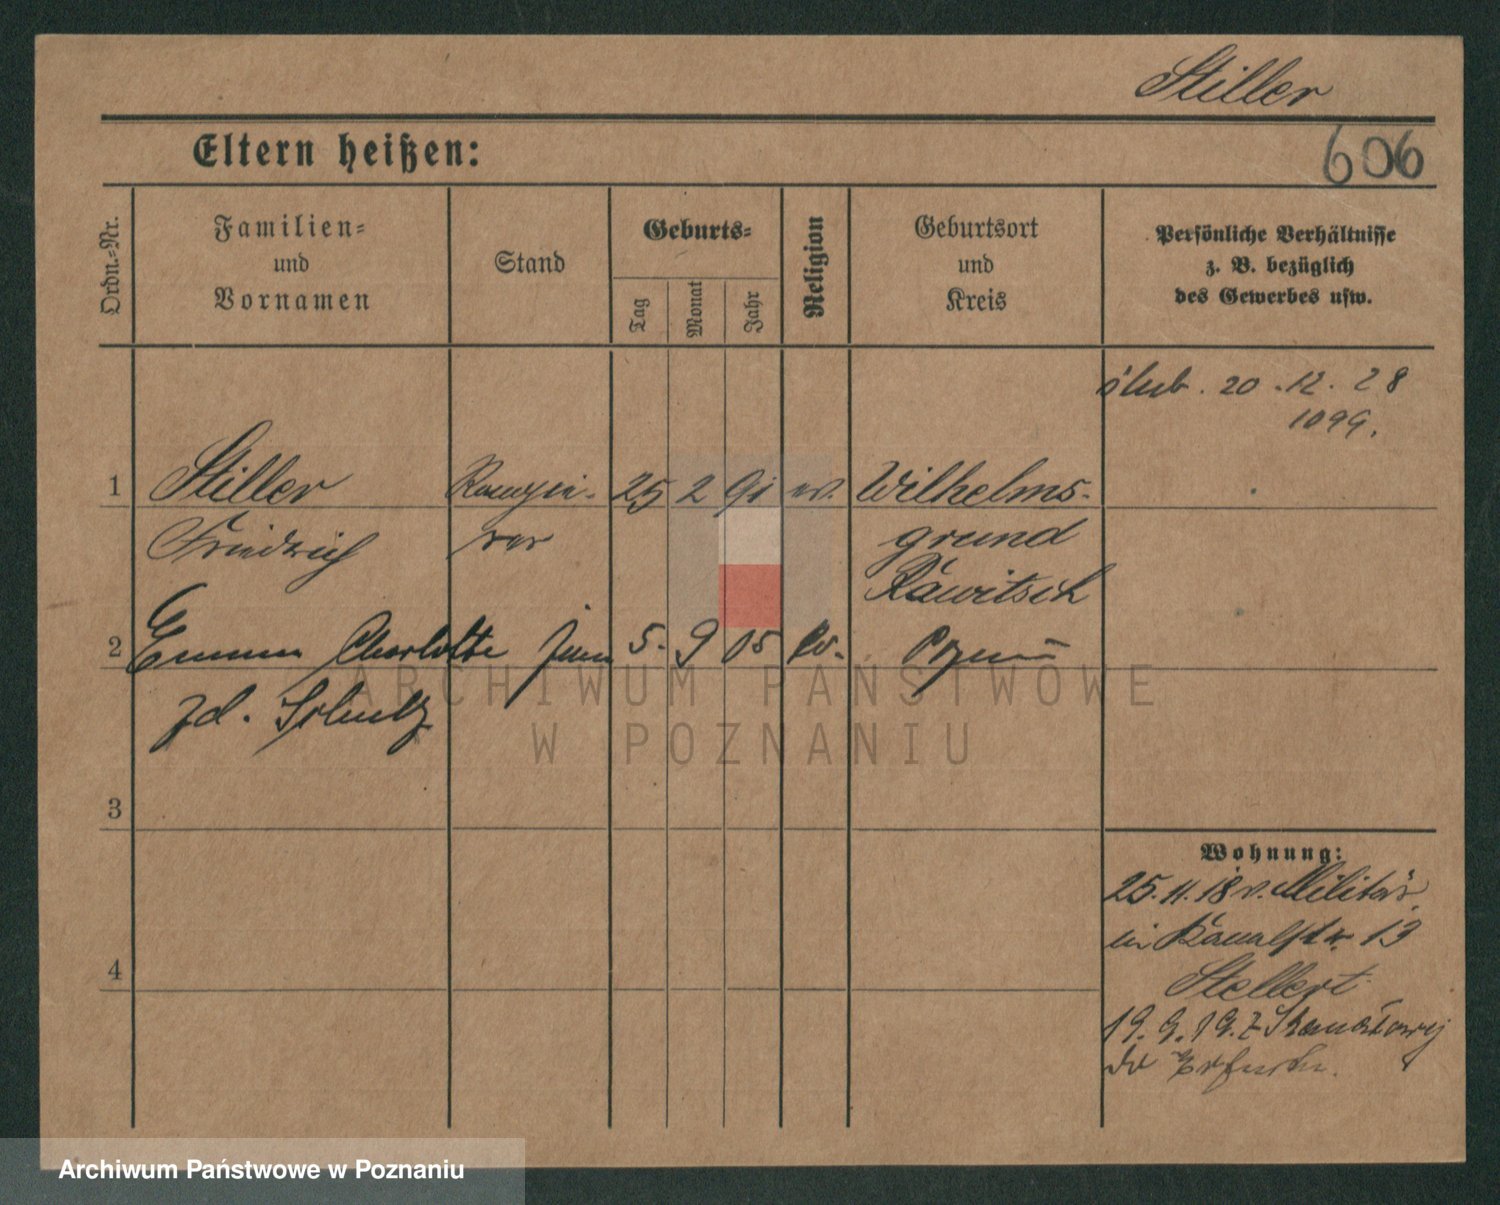 Stiller
Eltern heißen:
606
Ordn.-Nr.
Familien-
und
Vornamen
Stand
Geburts-
Tag
Monat
Jahr
Religion
Geburtsort
und
Kreis
Persönliche Verhältnisse
z. B. bezüglich
des Gewerbes usw.
ślub. 20.12.28
1099.
1 Stiller Rangie- 25 2 91 ev. Wilhelms-
Friedrich rer grund
Rawitsch
2 Emma Charlotte 5. 9 05 Ev.
zd. Schulz
3
Wohnung:
25.11.18 v. Militär
in Kanalstr. 19
4
Stellert
19.9.19. z Kanałowej
do Erfurtu.
ARCHIWUM PAŃSTWOWE
W POZNANIU
Archiwum Państwowe w Poznaniu